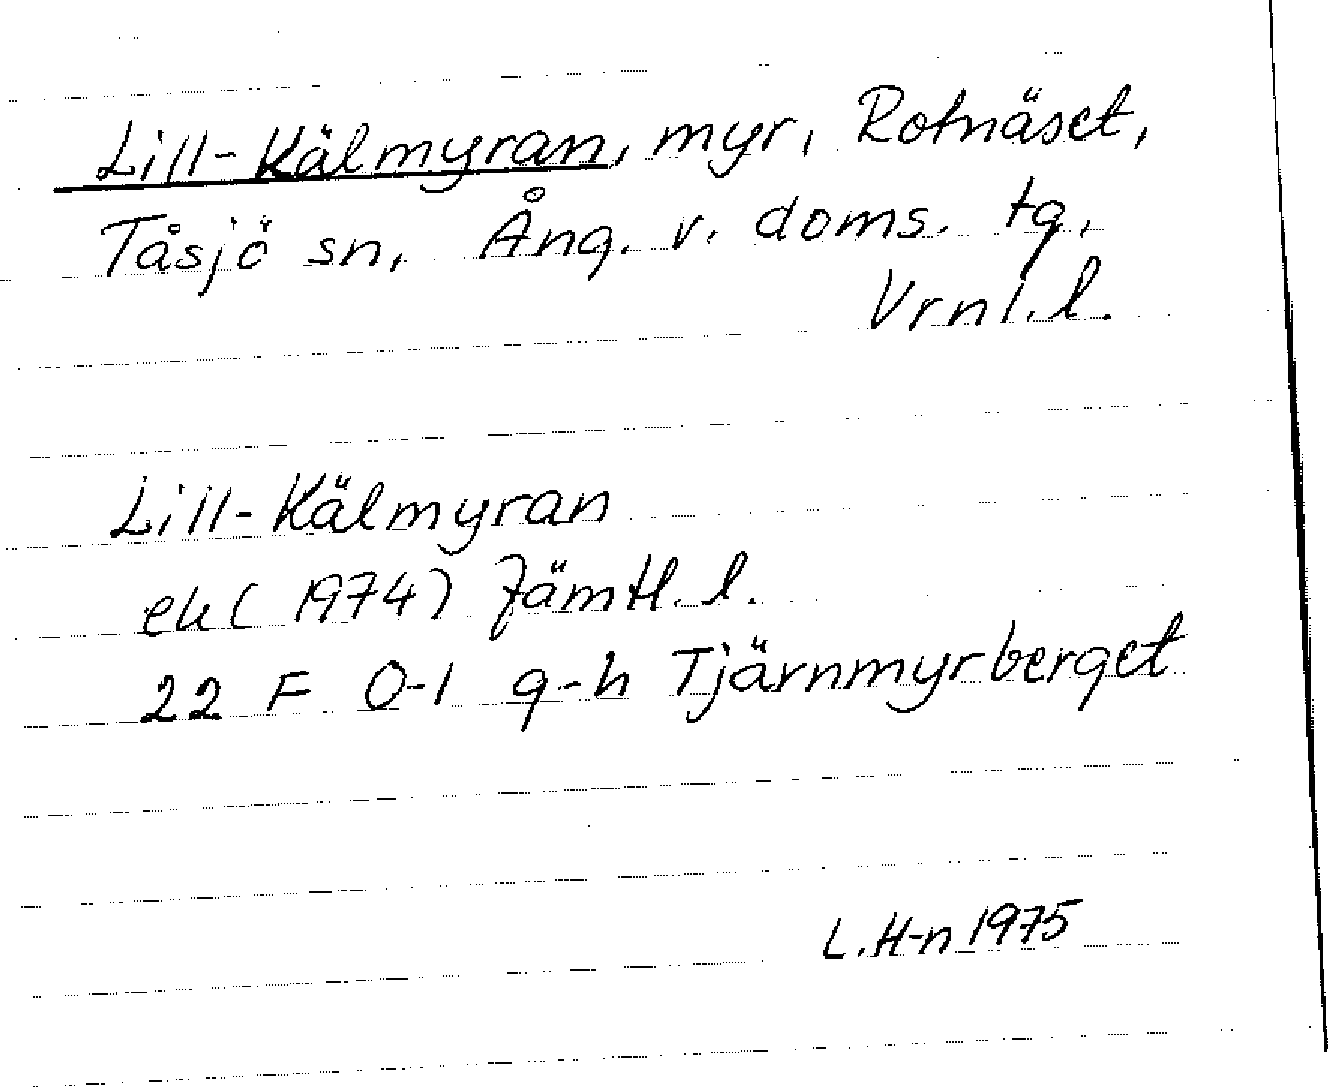 Lill-Kälmyran, myr, Rotnäset,
Tåsjö sn, Ång. v. doms. tg,
Vrnl.l.
Lill-Kälmyran
ek (1974) Jämtl. l.
22 F 0-1 g-h Tjärnmyrberget
L.H-n 1975